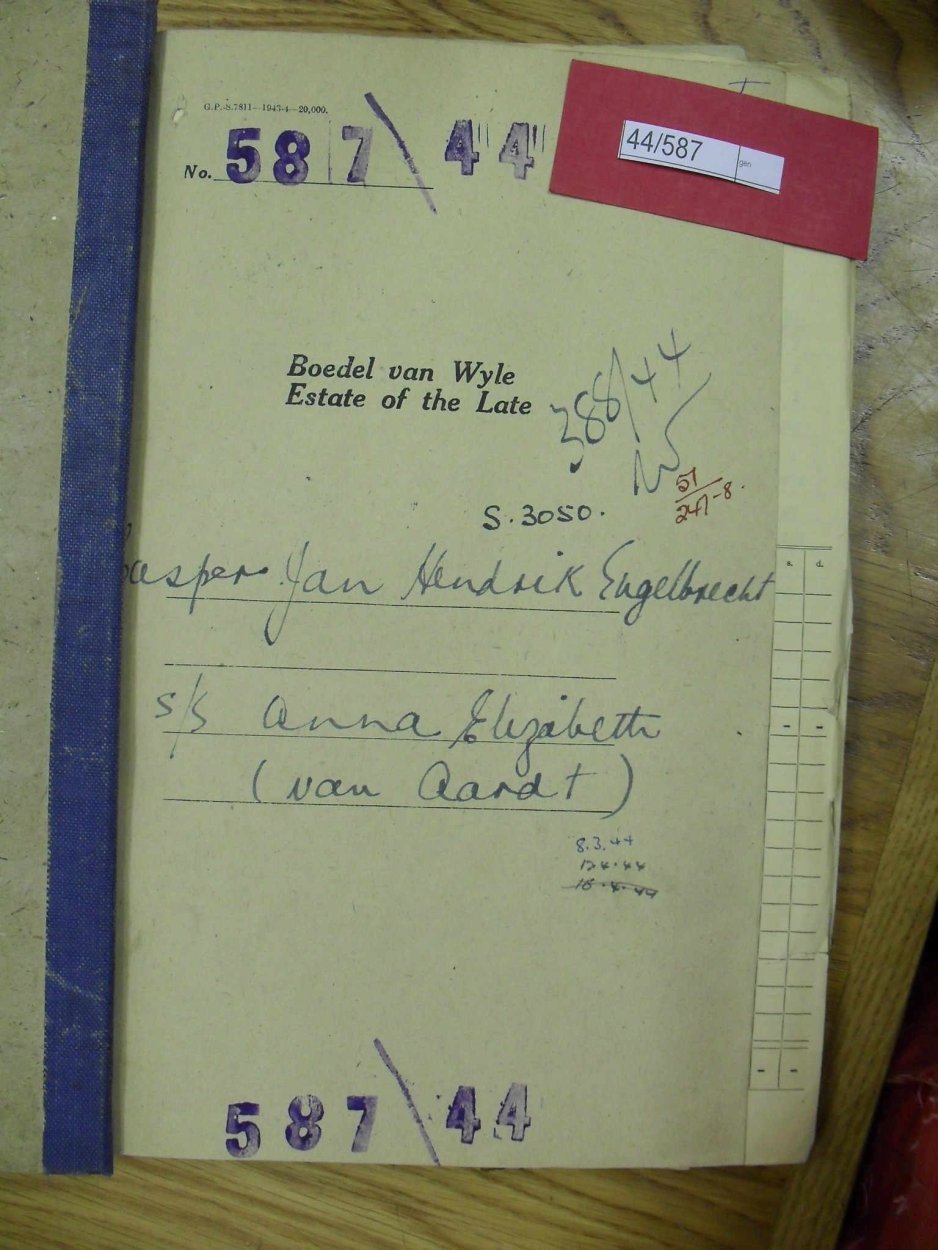 G.P.-S.7811—1943-4—20,000.
No. 587\44
44/587
gen
Boedel van Wyle
Estate of the Late
388/44
S.3050.
51/247-8.
Jan Hendrik Engelbrecht
s. d.
s/s Anna Elizabeth
(van Aardt)
8.3.44
12.4.44
18.4.44
587\44